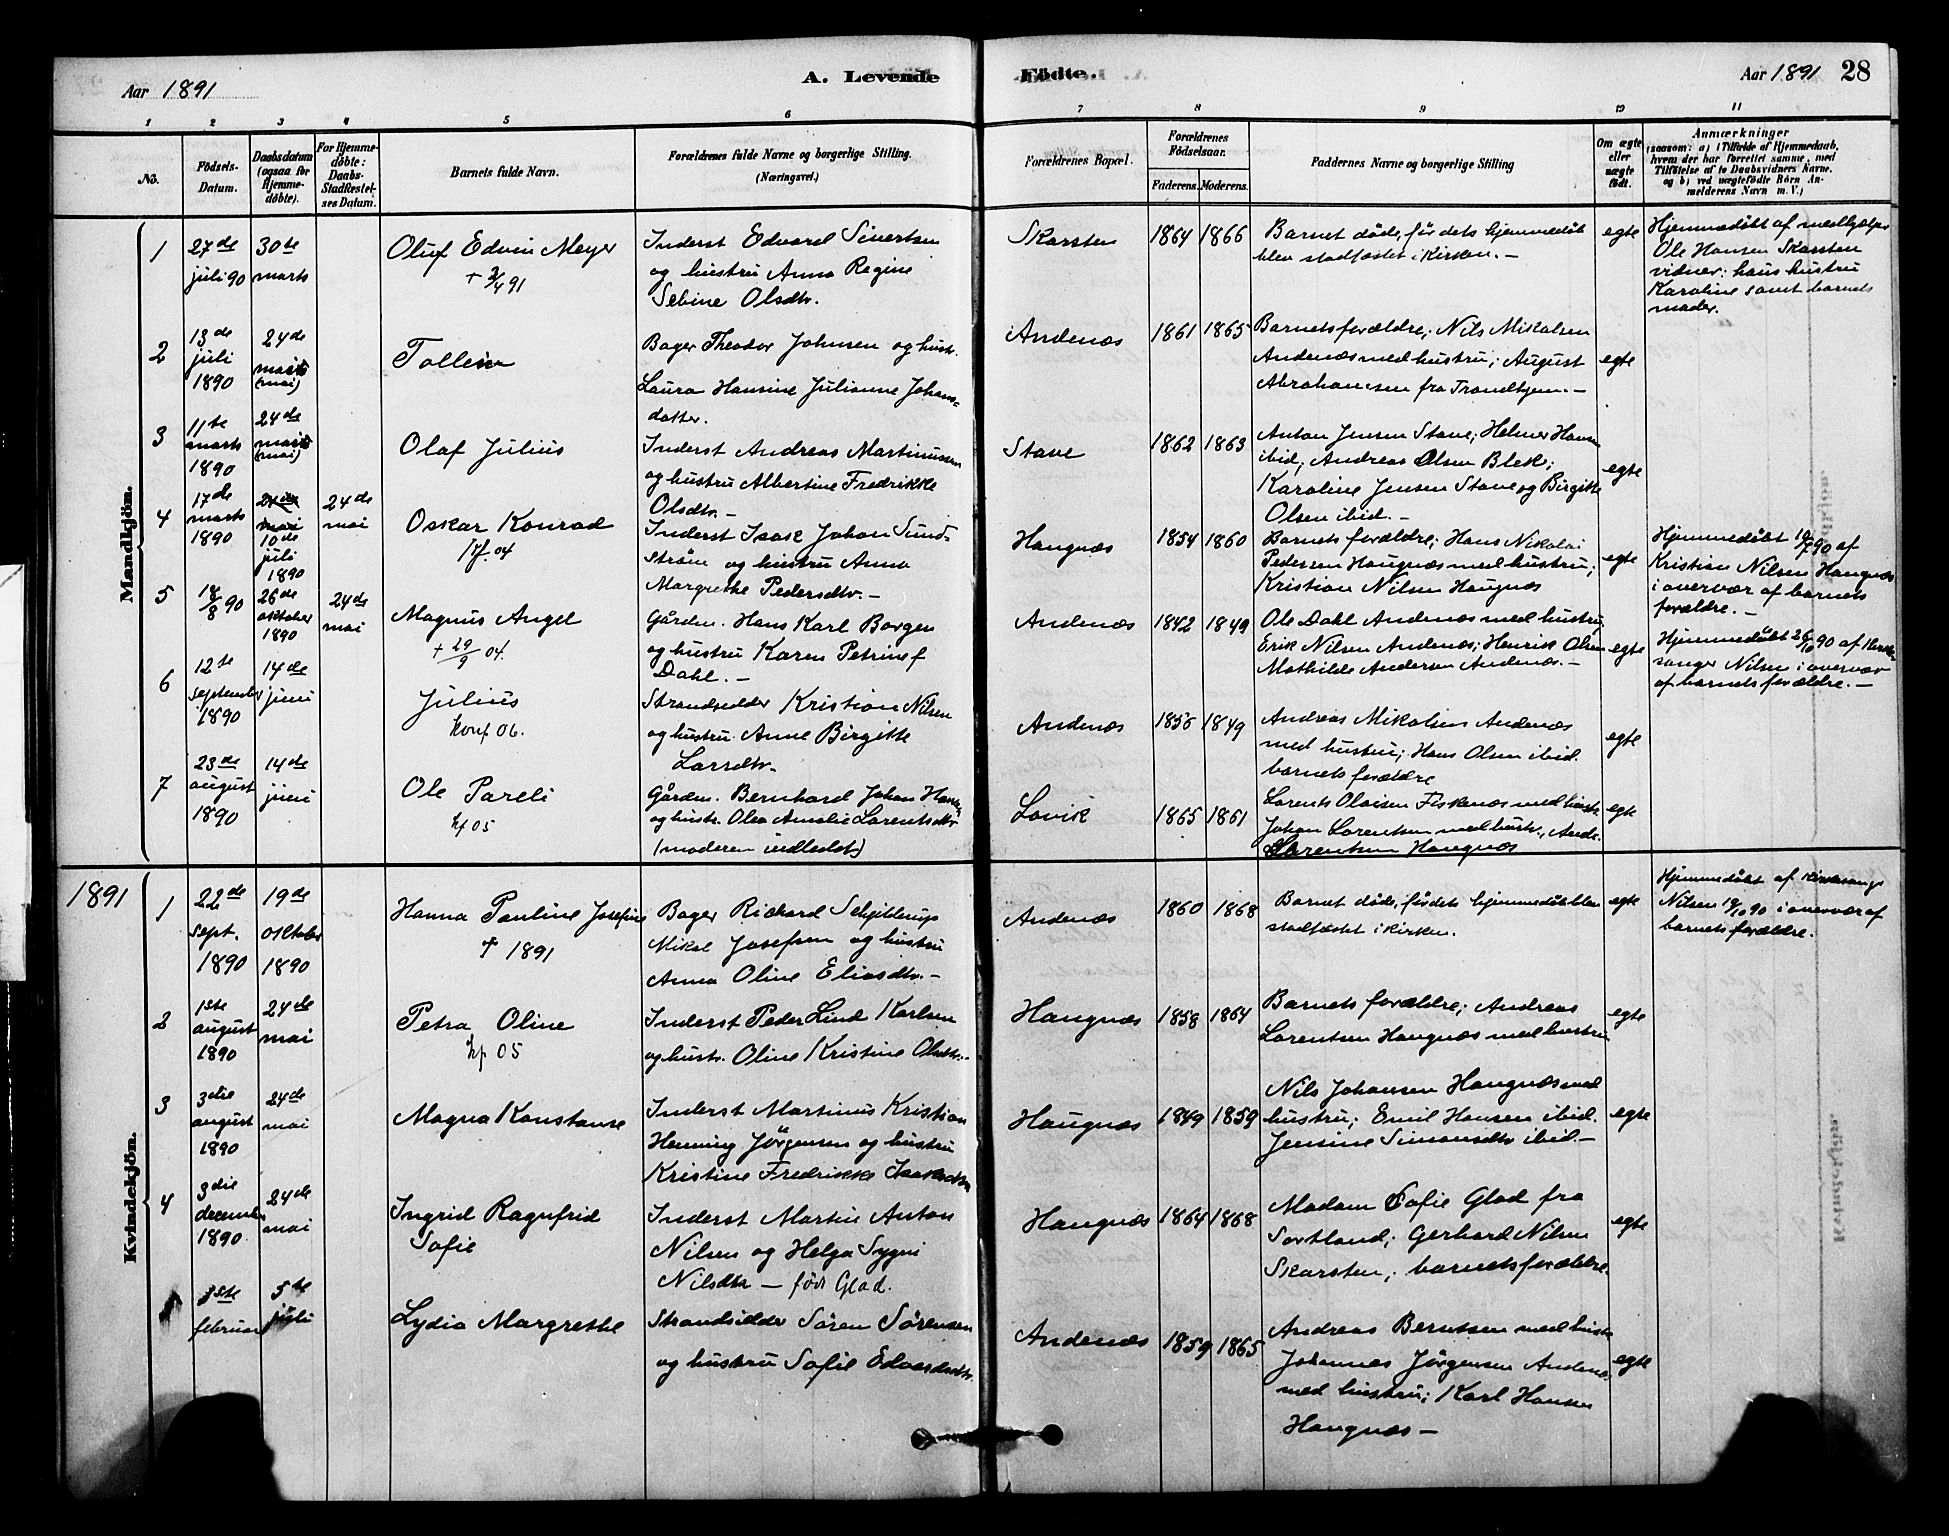 Aar 1891
A. Levende
Födte.
Aar 1891 28
1 2 3 4 5 6 7 8 9 10 11
No.
Födsels-
Datum.
Daabsdatum
(ogsaa for
Hjemme-
döbte).
For Hjemme-
döbte:
Daabs-
Stadfæstel-
ses Datum.
Barnets fulde Navn.
Forældrenes fulde Navne og borgerlige Stilling.
(Næringsvei.)
Forældrenes Bopæl.
Forældrenes
Födselsaar.
Faderens. Moderens.
Faddernes Navne og borgerlige Stilling
Om ægte
eller
uægte
födt.
Anmærkninger
(saasom: a) i Tilfælde af Hjemmedaab,
hvem der har forrettet samme, med
Tilföielse af to Daabsvidners Navne.
og b) ved uægtefödte Börn An-
melderens Navn m. V.)
Mandkjön.
1
27de
juli 90
30te
marts
Oluf Edvin Meyer
+ 2/4 91
Inderst Edvard Sivertsen
og hustru Anna Regine
Sebine Olsdtr.
Skarsten
1864 1866
Barnet døde, før dets hjemmedøbt
blev stadfæstet i Kirken. –
egte
Hjemmedøbt af medhjelper
Ole Hansen Skarsten
vidner: hans hustru
Karoline samt barnets
moder.
2
13de
juli
1890
24de
(mai)
Bager Theodor Johnsen og hust.
Laura Hansine Julianne Johans-
datter.
Andenæs
1861 1865
Barnets forældre; Nils Mikalsen
Andenæs med hustru; August
Abrahamsen fra Trondhjem. –
egte
3
11te
marts
1890
24de
(mai)
Olaf Julius
Inderst Andreas Martinussen
og hustru Albertine Fredrikke
Olsdtr. –
Stave
1862 1863
Anton Jensen Stave; Helmer Hansen
ibid; Andreas Olsen Blek;
Karoline Jensen Stave og Birgitte
Olsen ibid. –
egte
4
17de
marts
1890
24de
mai
10de
juli
1890
24de
mai
Oskar Konrad
Inderst Isak Johan Sund-
strøm og hustru Anna
Margrethe Pedersdtr. –
Haugnæs
1854 1860
Barnets forældre; Hans Nikolai
Pedersen Haugnæs med hustru;
Kristian Nilsen Haugnæs
egte
Hjemmedøbt 10/7 90 af
Kristian Nilsen Haugnæs
i overvær af barnets
forældre. –
5
18/8 90
26de
oktober
1890
24de
mai
Magnus Angel
+ 29/9 04.
Gårdm. Hans Karl Borgen
og hustru Karen Petrine f
Dahl. –
Andenæs
1842 1849
Ole Dahl Andenæs med hustru;
Erik Nilsen Andenæs; Henrik Olsen
Mathilde Andersen Andenæs. –
egte
Hjemmedøbt 26/10 90 af Kirke-
sanger Nilsen i overvær
af barnets forældre. –
6
12te
september
1890
14de
juni
Julius
konf 06.
Strandsidder Kristian Nilsen
og hustru Anne Birgitte
Larsdtr.
Andenæs
1856 1849
Andreas Mikalsen Andenæs
med hustru; Hans Olsen ibid.
barnets forældre
egte
7
23de
august
1890
14de
juni
Ole Pareli
kf 05
Gårdm. Bernhard Johan Hansen
og hustr. Olea Amalie Lorentsdtr
(moderen indledet)
Lovik
1865 1861
Lorents Olaisen Fiskenæs med hustr
Johan Lorentsen med hustr., Ande.
Lorentsen Haugnæs
egte
Kvindekjön.
1891
1
22de
sept.
1890
19de
oktober
1890
Hanna Pauline Josefine
+ 1891
Bager Richard Schjelderup
Mikal Josefsen og hustru
Anna Oline Eliasdtr. –
Andenæs
1860 1868
Barnet døde, før dets hjemmedøbt blev
stadfæstet i kirken.
egte
Hjemmedøbt af Kirkesanger
Nilsen 19/10 90 i overvær af
barnets forældre.
2
1ste
august
1890
24de
mai
Petra Oline
kf 05
Inderst Peder Lind Karlsen
og hustr. Oline Kristine Olsdtr. –
Haugnæs
1858 1864
Barnets forældre; Andreas
Lorentsen Haugnæs med hustru
egte
3
3die
august
1890
24de
mai
Magna Konstanse
Inderst Martinus Kristian
Henning Jörgensen og hustru
Kristine Fredrikke Isaksdtr
Haugnæs
1849 1859
Nils Johansen Haugnæs med
hustru; Emil Hansen ibid.
Jensine Simonsdtr ibid –
egte
4
3die
december
1890
24de
mai
Ingrid Ragnfrid
Sofie
Inderst Martin Anton
Nilsen og Helga Sygni
Nilsdtr – født Glad.
Haugnæs
1864 1868
Madam Sofie Glad fra
Sortland; Gerhard Nilsen
Skarsten; barnets forældre.
egte
1ste
februar
5te
juli
Lydia Margrethe
Strandsidder Søren Sørensen
og hustru Sofie Edvardsdtr.
Andenæs
1859 1865
Andreas Berntsen med hustr
Johannes Jörgensen Andenæs
med hustru; Karl Hansen
Haugnæs –
egte